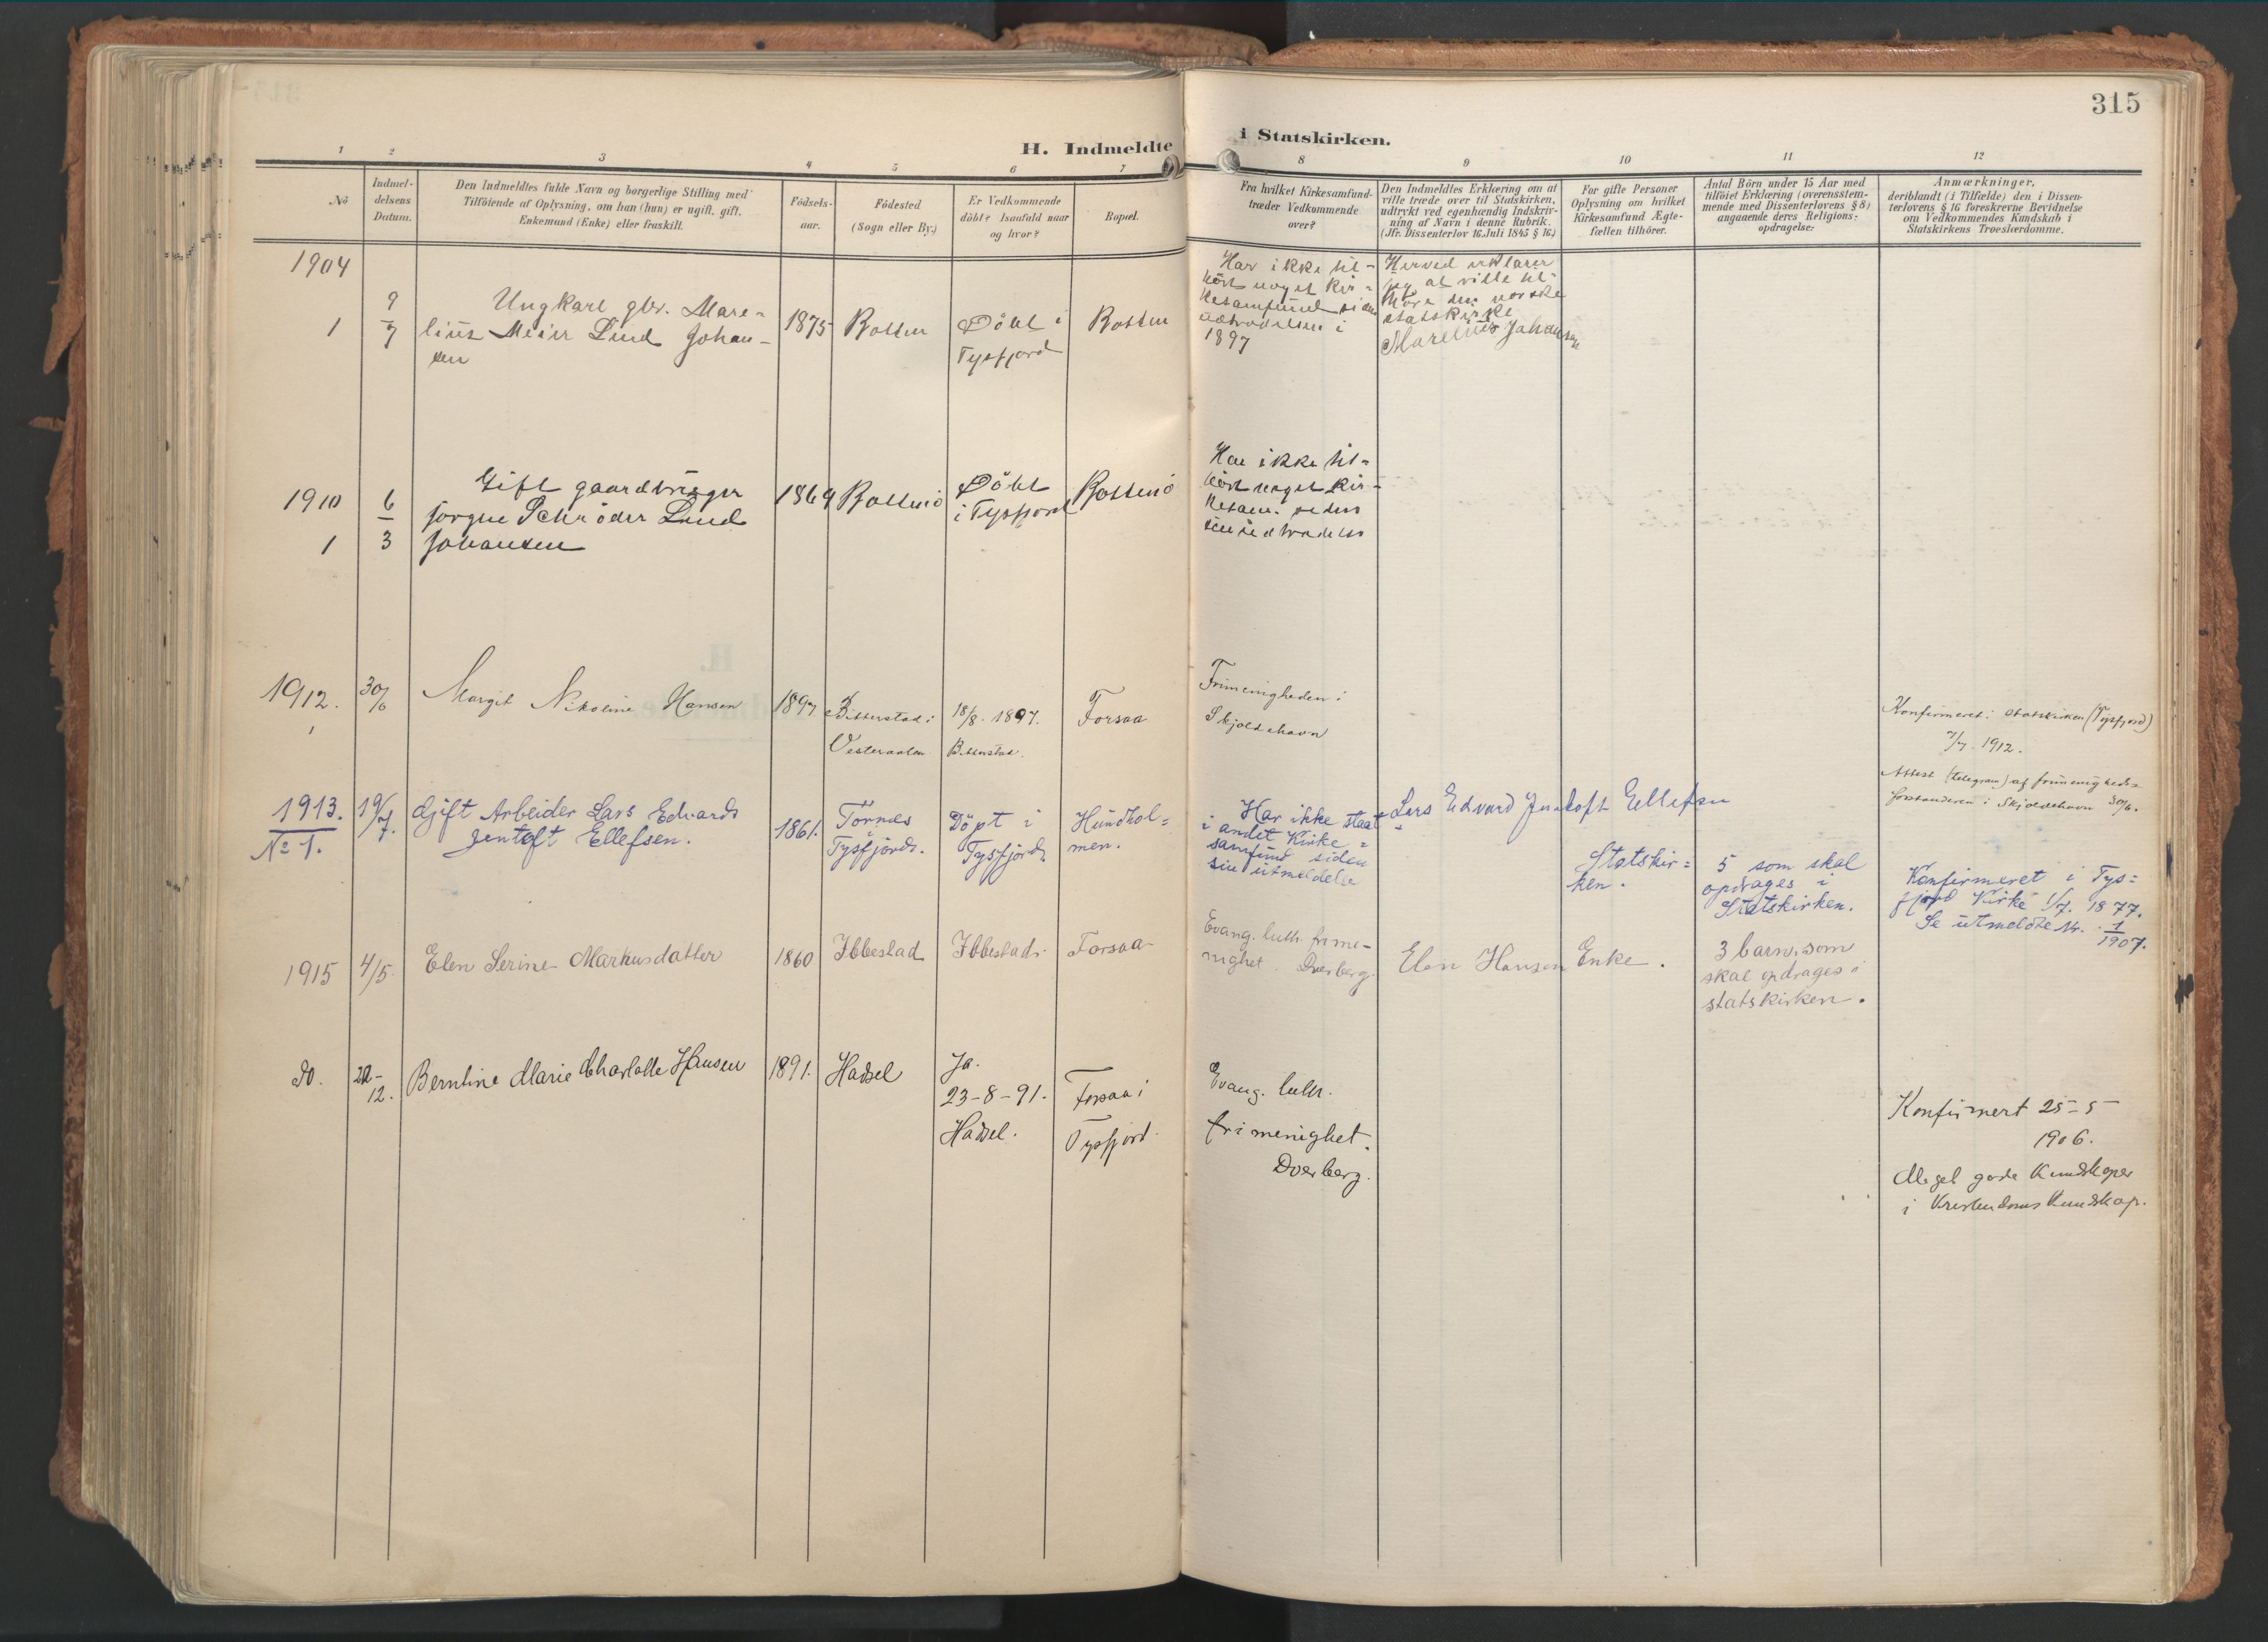 315
H. Indmeldte i Statskirken.
1 2 3 4 5 6 7 8 9 10 11 12
No
Indmel-
delsens
Datum.
Den Indmeldtes fulde Navn og borgerlige Stilling med
Tilföiende af Oplysning, om han (hun) er ugift, gift,
Enkemand (Enke) eller fraskilt.
Födsels-
aar.
Födested
(Sogn eller By.)
Er Vedkommende
döbt? Isaafald naar
og hvor?
Bopæl.
Fra hvilket Kirkesamfund
træder Vedkommende
over?
Den Indmeldtes Erklæring om at
ville træde over til Statskirken,
udtrykt ved egenhændig Indskriv-
ning af Navn i denne Rubrik.
(Jfr. Dissenterlov 16. Juli 1845 § 16.)
For gifte Personer
Oplysning om hvilket
Kirkesamfund Ægte-
fællen tilhörer.
Antal Börn under 15 Aar med
tilföiet Erklæring (overensstem-
mende med Dissenterlovens § 8)
angaaende deres Religions-
opdragelse:
Anmærkninger,
deriblandt (i Tilfælde) den i Dissen-
terlovens § 16 foreskrevne Bevidnelse
om Vedkommendes Kundskab i
Statskirkens Troeslærdomme.
1904
1
9
7
Ungkarl gbr. Mare-
lius Meier Lind Johan-
sen
1875
Botten
Döbt i
Tysfjord
Botten
Har ikke til-
hört noget Kir-
kesamfund siden
udtrædelsen i
1897
Herved erklærer
jeg at ville til-
höre den norske
statskirke
Marelius Johansen
1910
1
6
3
Gift gaardbruger
Jörgen Schröder Lind
Johansen
1869
Döbt
i Tysfjord
Har ikke til-
hört noget Kir-
kesam. siden
sin udtrædelse
1912.
1
30/6
Margit Nikoline Hansen
1897
Bitterstad i
Vesteraalen
18/8. 1897.
Bitterstad.
Forsaa
Frimenigheden i
Skjoldehavn
Konfirmeret i statskirken (Tysfjord)
7/7. 1912.
Attest (telegram) af frimenigheds-
forstanderen i Skjoldehavn 30/6.
1913.
No 1.
19/7.
Gift Arbeider Lars Edvard
Jentoft Ellefsen.
1861.
Törnes
i
Tysfjord.
Döpt i
Tysfjord.
Hundhol-
men.
Har ikke staat
i andet Kirke-
samfund siden
sin utmeldelse
Lars Edvard Jentoft Ellefsen
Statskir-
ken.
5 som skal
opdrages i
Statskirken.
Konfirmeret i Tys-
fjord Kirke 1/7. 1877.
Se utmeldte Nr. 1
1907.
1915
4/5.
Elen Serine Markusdatter
1860
Ibbestad
Ibbestad.
Forsaa
Evang. luth. frime-
nighet. Dverberg.
Elen Hansen
Enke.
3 barn, som
skal opdrages i
statskirken.
do.
12.
Berntine Marie Charlotte Hansen
1891.
Hadsel
Ja.
23-8-91.
Hadsel.
Forsaa i
Tysfjord.
Evang. luth.
frimenighet.
Dverberg.
Konfirmert 25-5
1906.
Meget gode Kundskaper
i Kristendoms Kundskap.